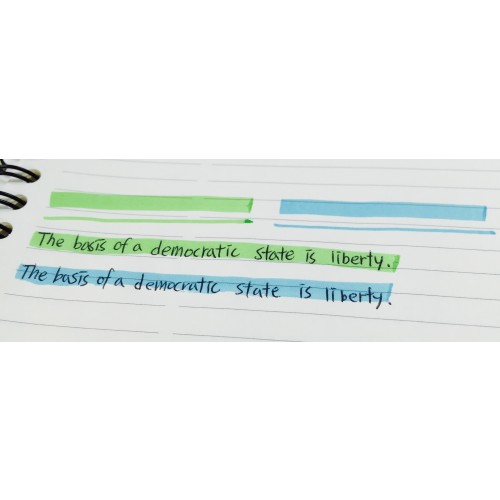 The basis of a democratic state is liberty.
The basis of a democratic state is liberty.